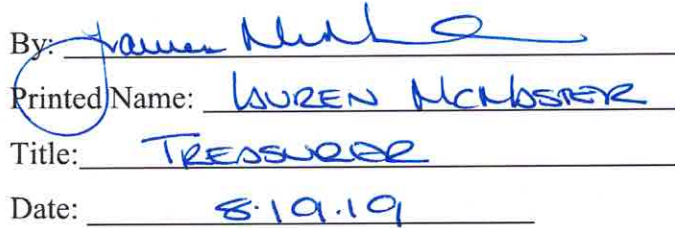 By: Lauren McMaster
Printed Name: LAUREN MCMASTER
Title: TREASURER
Date: 8.19.19